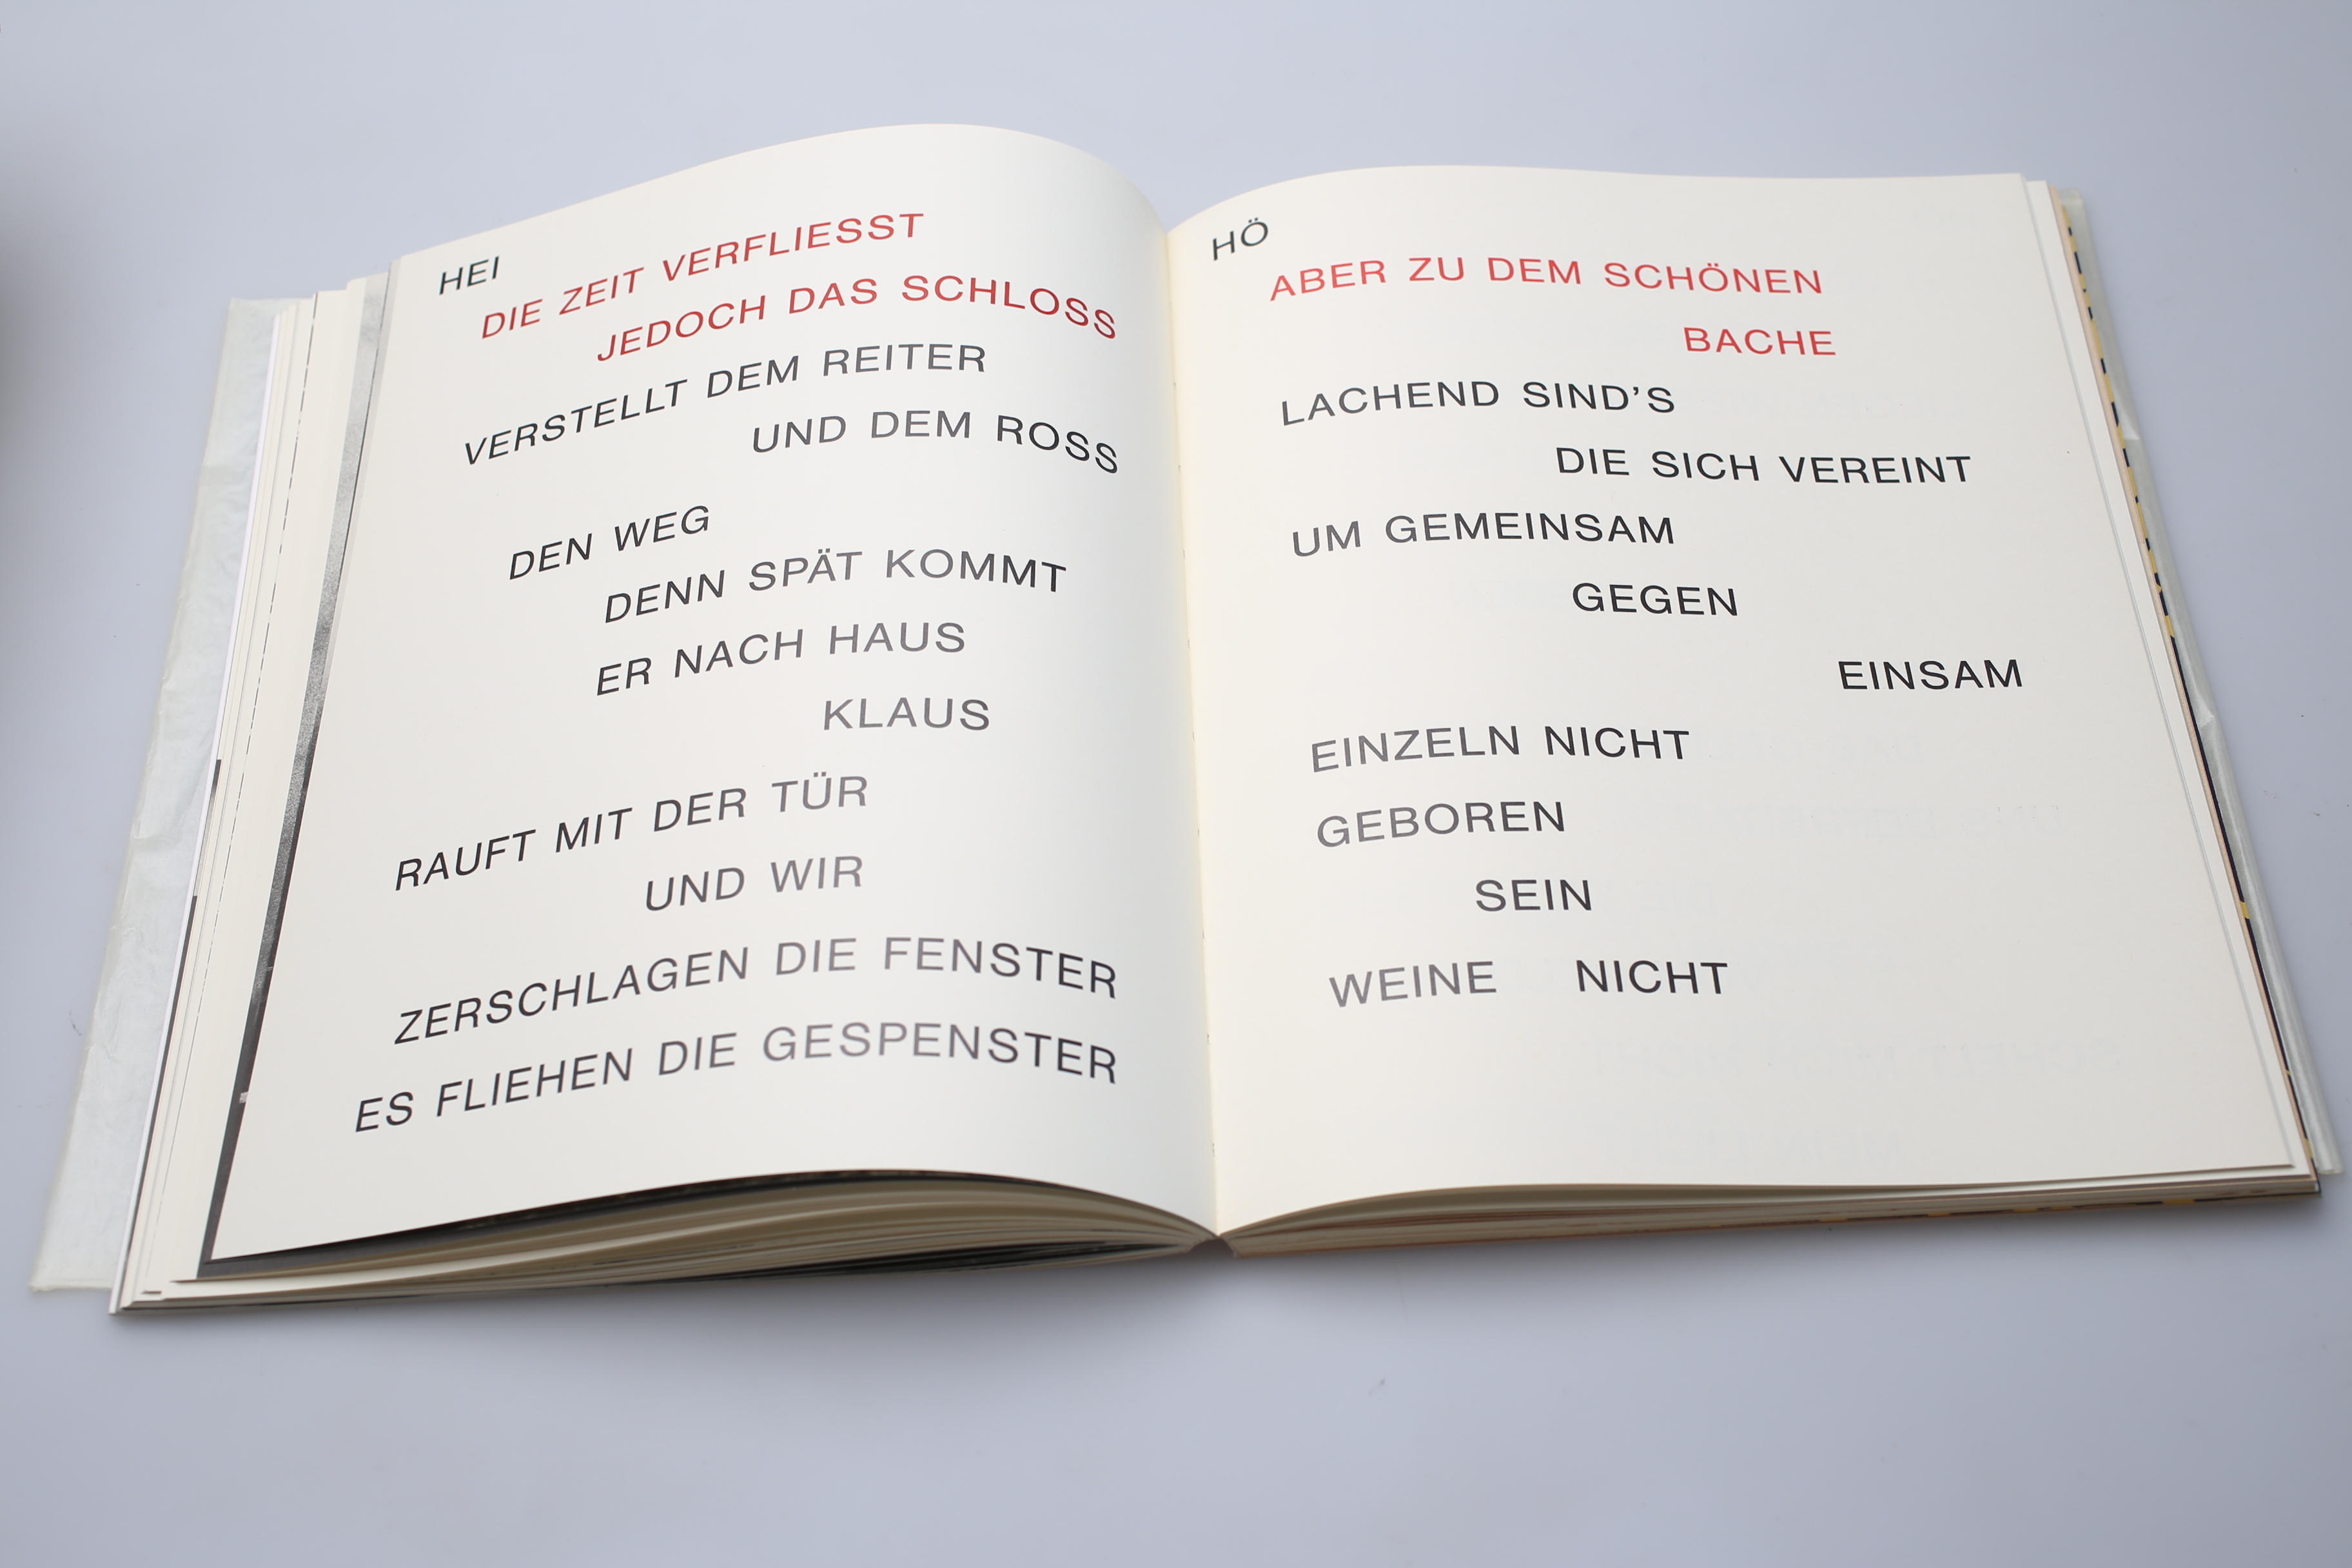 HEI
DIE ZEIT VERFLIESST
JEDOCH DAS SCHLOSS
VERSTELLT DEM REITER
UND DEM ROSS
DEN WEG
DENN SPÄT KOMMT
ER NACH HAUS
KLAUS
RAUFT MIT DER TÜR
UND WIR
ZERSCHLAGEN DIE FENSTER
ES FLIEHEN DIE GESPENSTER
HÖ
ABER ZU DEM SCHÖNEN
BACHE
LACHEND SIND'S
DIE SICH VEREINT
UM GEMEINSAM
GEGEN
EINSAM
EINZELN NICHT
GEBOREN
SEIN
WEINE NICHT